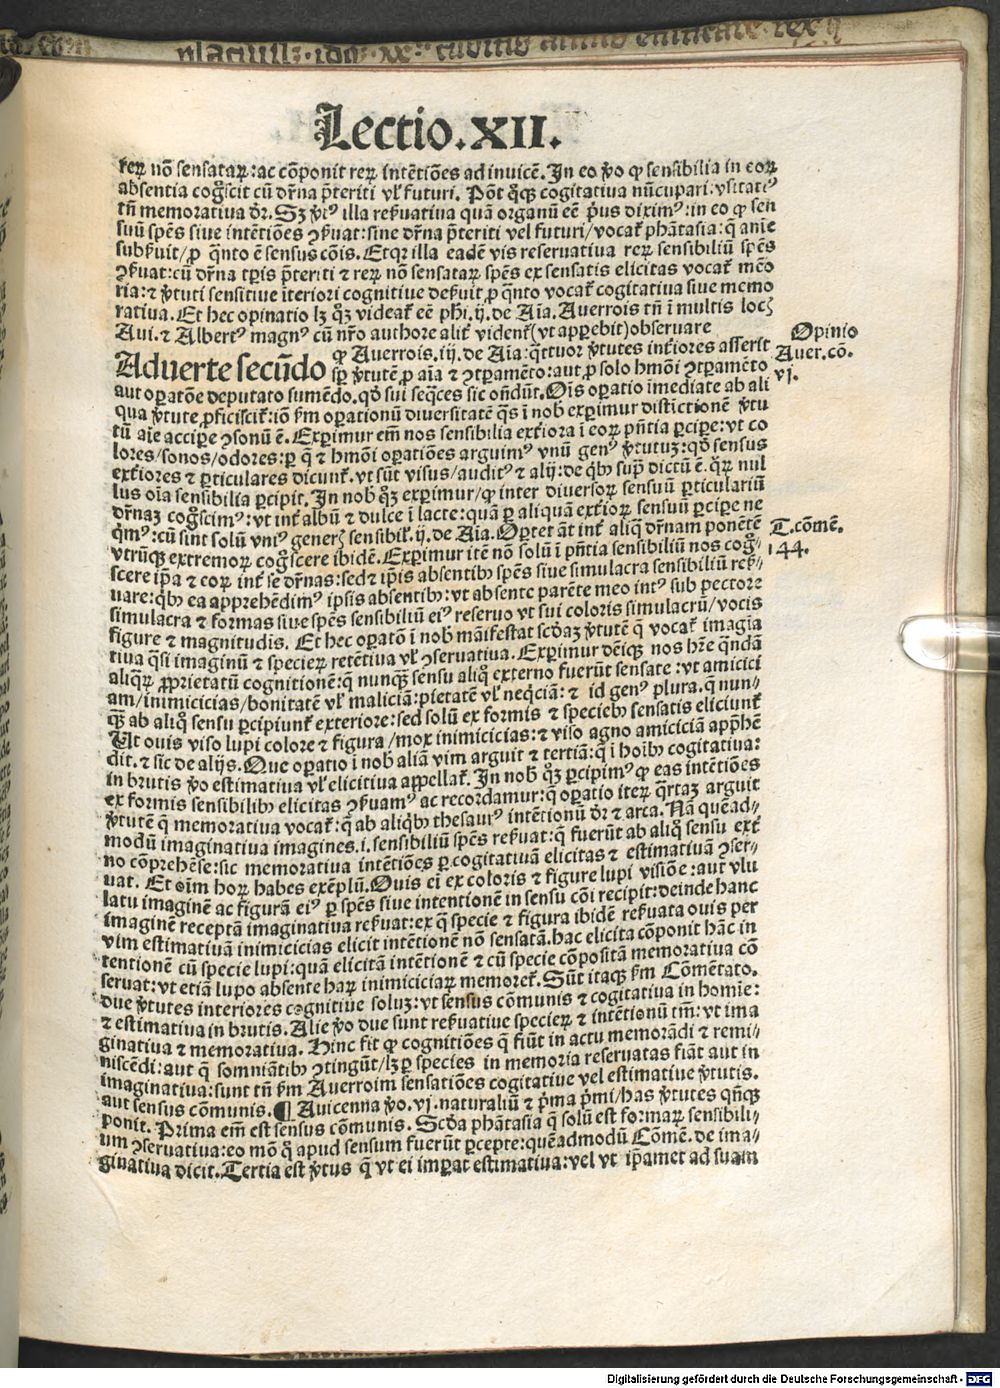 Lectio.XII.
reꝝ nō sensataꝝ:ac cōponit reꝝ intētiōes ad inuicē. In eo ꝟo ꝙ sensibilia in eoꝝ
absentia cogͦscit cū dr̄na p̄teriti vl̓ futuri. Pōt qͦꝙ cogitatiua nūcupari: vsitatiꝰ
tn̄ memoratiua dr̄. Sꝫ ꝟiꝰ illa reẜuatiua quā organū eē priꝰ diximꝰ: in eo ꝙ sen
suū spēs siue intētiōes ꝯẜuat: sine dr̄na p̄teriti vel futuri/ vocat̉ phātasia: q̄ anīe
subẜuit/ ꝓ qͣnto ē sensus cōis. Etqꝛ illa eadē vis reseruatiua reꝝ sensibiliū spēs
ꝯẜuat: cū dr̄na tꝑis p̄teriti ⁊ reꝝ nō sensataꝝ spēs ex sensatis elicitas vocat̉ mēo
ria: ⁊ ꝟtuti sensitiue īteriori cognitiue deẜuit ꝓ qͣnto vocat̉ cogitatiua siue memo
ratiua. Et hec opinatio lꝫ qͦꝫ videat̉ eē phi. ij. de Aīa. Auerrois tn̄ ī multis locꝭ
Aui. ⁊ Albertꝰ magnꝰ cū nr̄o authore alit̉ vident̉ (vt apparebit) obseruare
Opinio
Auer. cō.
vj.
Aduerte secūdo ꝙ Auerrois. iij. de Aīa: qͣttuor ꝟtutes int̉iores asserit
sꝑ ꝟtutē ꝓ aīa ⁊ ꝯtꝑamēto: aut ꝓ solo hmōi ꝯtꝑamēto
aut oꝑatōe deputato sumēdo. qd̓ sui seqͣces sic ondūt. Oīs oꝑatio īmediate ab ali
qua ꝟtute ꝓficiscit̉: iō ẜm oꝑationū diuersitatē qͣs ī nob̓ exꝑimur distīctionē ꝟtu
tū aīe accipe ꝯsonū ē. Exꝑimur em̄ nos sensibilia ext̉iora ī eoꝝ pn̄tia ꝑcipe: vt co
lores/ sonos/ odores: ꝑ q̄ ⁊ hmōi oꝑatiōes arguimꝰ vnū genꝰ ꝟtutuꝫ: qd̓ sensus
ext̉iores ⁊ ꝑticulares dicunt̉. vt sūt visus/ auditꝰ ⁊ alij: de qͥbꝰ supͣ dictū ē. qͦꝝ nul
lus oīa sensibilia ꝑcipit. In nob̓ qͦꝫ exꝑimur/ ꝙ inter diuersoꝝ sensuū ꝑticulariū
dr̄naꝫ cogͦscimꝰ: vt int̉ albū ⁊ dulce ī lacte: quā ꝑ aliquā ext̉ioꝝ sensuū ꝑcipe ne
qͥmꝰ: cū sint solū vniꝰ generꝭ sensibil̓. ij. de Aīa. Oꝑtet āt int̉ aliqͣ dr̄nam ponētē
T. cōmē.
144.
vtrūqꝫ extremoꝝ cogͦscere ibidē. Exꝑimur itē nō solū ī pn̄tia sensibiliū nos cogͦ⸗
scere ip̄a ⁊ eoꝝ int̉ se dr̄nas: sed ⁊ ip̄is absentibꝰ spēs siue simulacra sensibiliū reẜ⸗
uare: qͥbꝰ ea apprehēdimꝰ ipsis absentibꝰ: vt absente parēte meo intꝰ sub pectore
simulacra ⁊ formas siue spēs sensibiliū eiꝰ reseruo vt sui coloris simulacrū/ vocis
figure ⁊ magnitudis. Et hec oꝑatō ī nob̓ māifestat scd̓aꝫ ꝟtutē q̄ vocat̉ imagīa
tiua qͣsi imaginū ⁊ specieꝝ retētiua vl̓ ꝯseruatiua. Exꝑimur dēiqꝫ nos hr̄e qͣndā
aliqͣꝝ ꝓprietatū cognitionē: q̄ nunqꝫ sensu aliqͦ externo fuerūt sensate: vt amicici
am/ inimicicias/ bonitatē vl̓ maliciā: pietatē vl̓ neqͥciā: ⁊ id genꝰ plura. q̄ nun⸗
qͣꝫ ab aliqͦ sensu ꝑcipiunt̉ exteriore: sed solū ex formis ⁊ speciebꝰ sensatis eliciunt̉
Ut ouis viso lupi colore ⁊ figura/ mox inimicicias: ⁊ viso agno amiciciā app̄hē
dit. ⁊ sic de alijs. Que oꝑatio ī nob̓ aliā vim arguit ⁊ tertiā: q̄ ī hoībꝰ cogitatiua:
in brutis ꝟo estimatiua vl̓ elicitiua appellat̉. In nob̓ qͦꝫ ꝑcipimꝰ ꝙ eas intētiōes
ex formis sensibilibꝰ elicitas ꝯẜuamꝰ ac recordamur: q̄ oꝑatio iteꝝ qͣrtaꝫ arguit
ꝟtutē q̄ memoratiua vocat̉: q̄ ab aliqͥbꝰ thesaurꝰ intētionū dr̄ ⁊ arca. Nā quēad⸗
modū imaginatiua imagines .i. sensibiliū spēs reẜuat: q̄ fuerūt ab aliqͦ sensu ext̉
no cōprehēse: sic memoratiua intētiōes ꝑ cogitatiuā elicitas ⁊ estimatiuā ꝯser⸗
uat. Et oīm hoꝝ habes exēplū. Ouis ei̅ ex coloris ⁊ figure lupi visiōe: aut vlu
latu imaginē ac figurā eiꝰ ꝑ spēs siue intentionē in sensu cōi recipit: deinde hanc
imaginē receptā imaginatiua reẜuat: ex qͣ specie ⁊ figura ibidē reẜuata ouis per
vim estimatiuā inimicicias elicit intētionē nō sensatā. hac elicita cōponit hāc in
tentionē cū specie lupi: quā elicitā intētionē ⁊ cū specie cōpositā memoratiua cō
seruat: vt etiā lupo absente haꝝ inimiciciaꝝ memoret̉. Sūt itaqꝫ ẜm Cōmētato.
due ꝟtutes interiores cognitiue soluꝫ: vt sensus cōmunis ⁊ cogitatiua in homīe:
⁊ estimatiua in brutis. Alie ꝟo due sunt reẜuatiue specieꝝ ⁊ intētionū tm̄: vt ima
ginatiua ⁊ memoratiua. Hinc fit ꝙ cognitiōes q̄ fiūt in actu memorādi ⁊ remi⸗
niscēdi: aut q̄ somniātibꝰ ꝯtingūt/ lꝫ ꝑ species in memoria reseruatas fiāt aut in
imaginatiua: sunt tn̄ ẜm Auerroim sensatiōes cogitatiue vel estimatiue ꝟtutis.
aut sensus cōmunis. ¶ Auicenna ꝟo. vj. naturaliū ⁊ pͥma pͥmi/ has ꝟtutes qͥnqꝫ
ponit. Prima em̄ est sensus cōmunis. Scd̓a phātasia q̄ solū est formaꝝ sensibili⸗
um ꝯseruatiua: eo mō qͦ apud sensum fuerūt ꝑcepte: quēadmodū Cōmē. de ima⸗
ginatiua dicit. Tertia est ꝟtus q̄ vt ei imꝑat estimatiua: vel vt ip̄amet ad suam
Digitalisierung gefördert durch die Deutsche Forschungsgemeinschaft - DFG